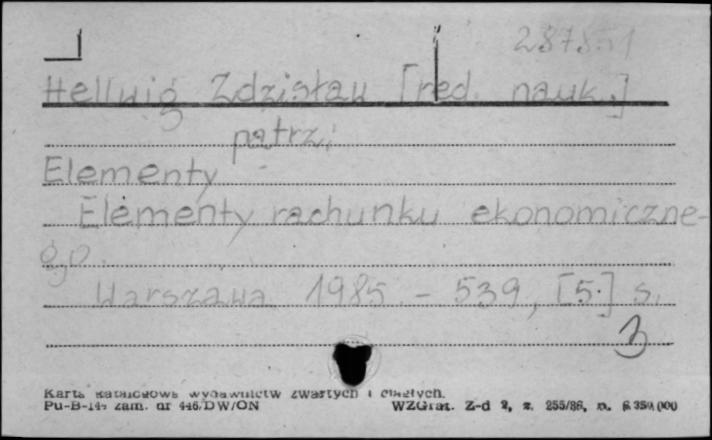 Hellwig Zdzisław [red. nauk.]
patrz:
Elementy
Elementy rachunku ekonomiczne-
go.
Warszawa 1985 - 539, [5] s.
3
Karta katalogowa wydawnictw zwartych i ciągłych.
Pu-B-144 zam. nr 446/DW/ON WZGraf. Z-d 2, z. 255/86, n. 6 350 000